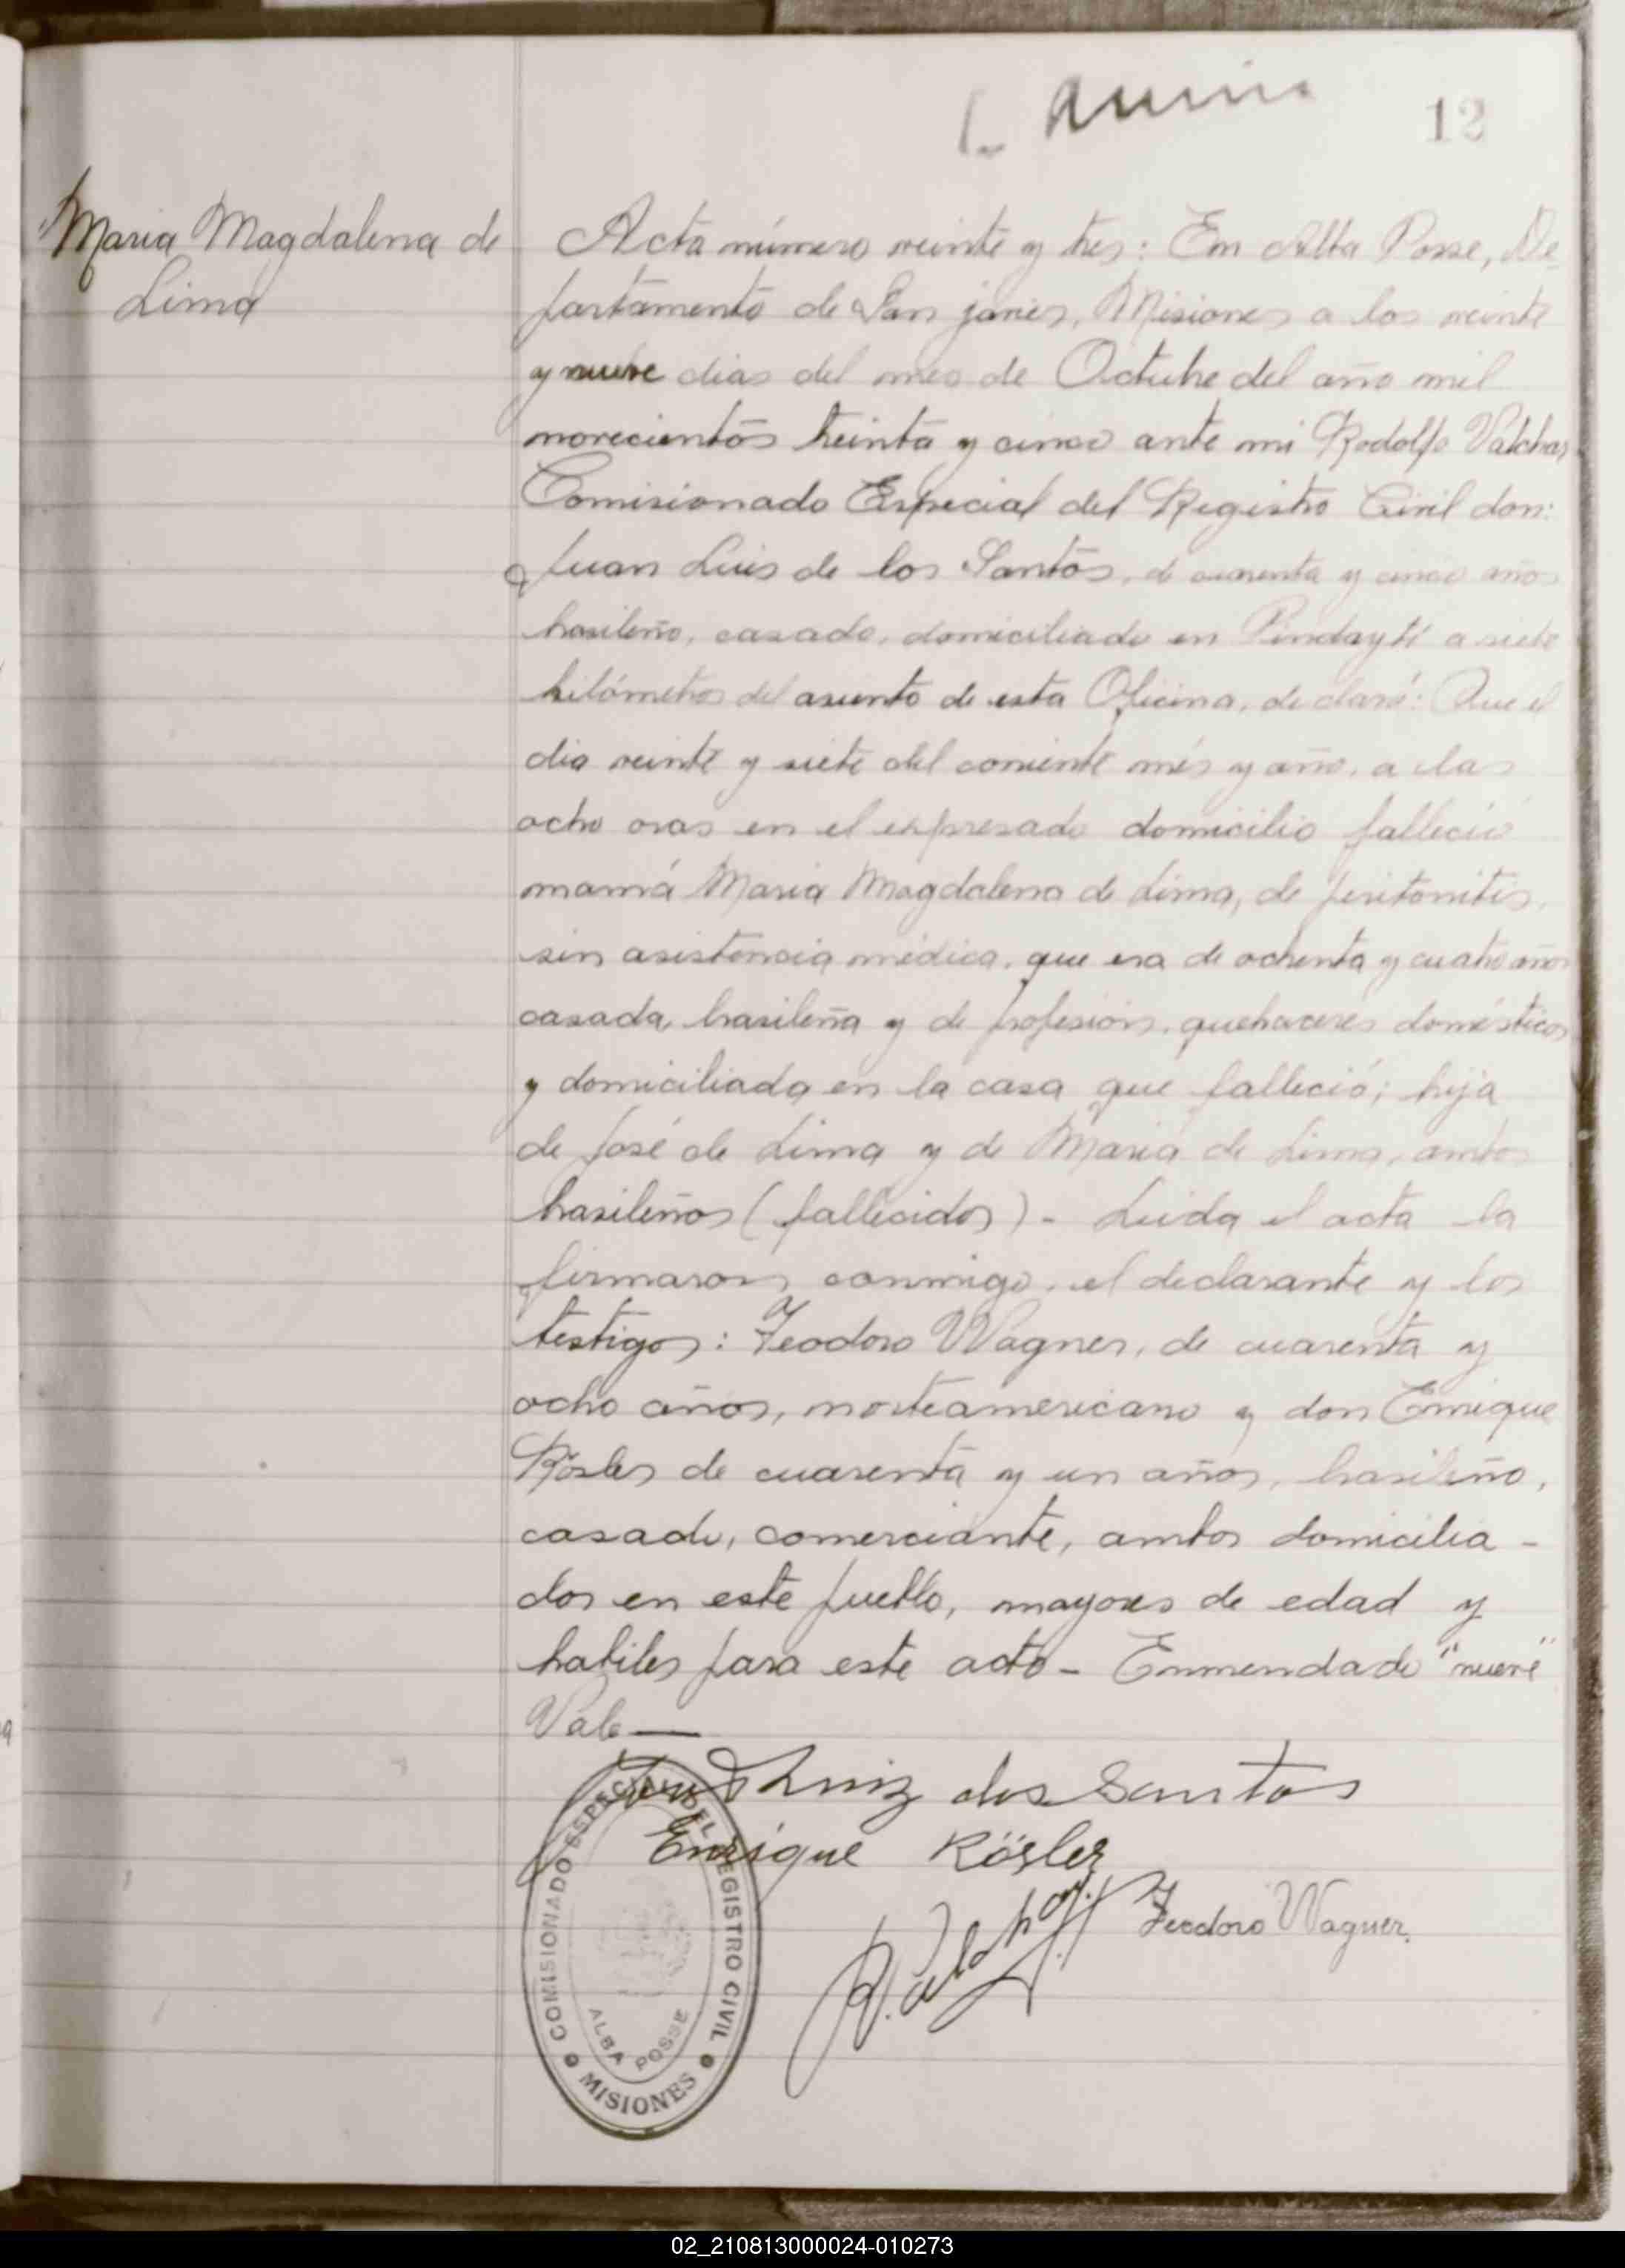 12
Maria Magdalena de
Lima
Acta número veinte y tres: En Alba Posse, De-
partamento de San javier, Misiones a los veinte
y nueve dias del mes de Octubre del año mil
novecientos treinta y cinco ante mi Rodolfo Valchar
Comisionado Especial del Registro Civil don:
Juan Luis de los Santos, de cuarenta y cinco años
brasileño, casado, domiciliado en Pindaytí a siete
kilómetros del asunto de esta Oficina, declaró: Que el
dia veinte y siete del corriente més y año, a las
ocho oras en el expresado domicilio falleció
mamá Maria Magdalena de Lima, de peritonitis,
sin asistencia médica, que era de ochenta y cuatro años
casada, brasileña y de profesión, quehaceres domésticos
y domiciliada en la casa que falleció; hija
de José de Lima y de Maria de Lima, ambos
brasileños (fallecidos) - Leida el acta la
firmaron conmigo, el declarante y los
testigos: Teodoro Wagner, de cuarenta y
ocho años, norteamericano y don Enrique
Rösler de cuarenta y un años, brasileño,
casado, comerciante, ambos domicilia-
dos en este pueblo, mayores de edad y
habiles para este acto - Enmendado "nueve"
Vale —
Luiz dos Santos
Enrique Rösler
Teodoro Wagner.
COMISIONADO ESPECIAL DEL REGISTRO CIVIL
ALBA POSSE
MISIONES
02_210813000024-010273